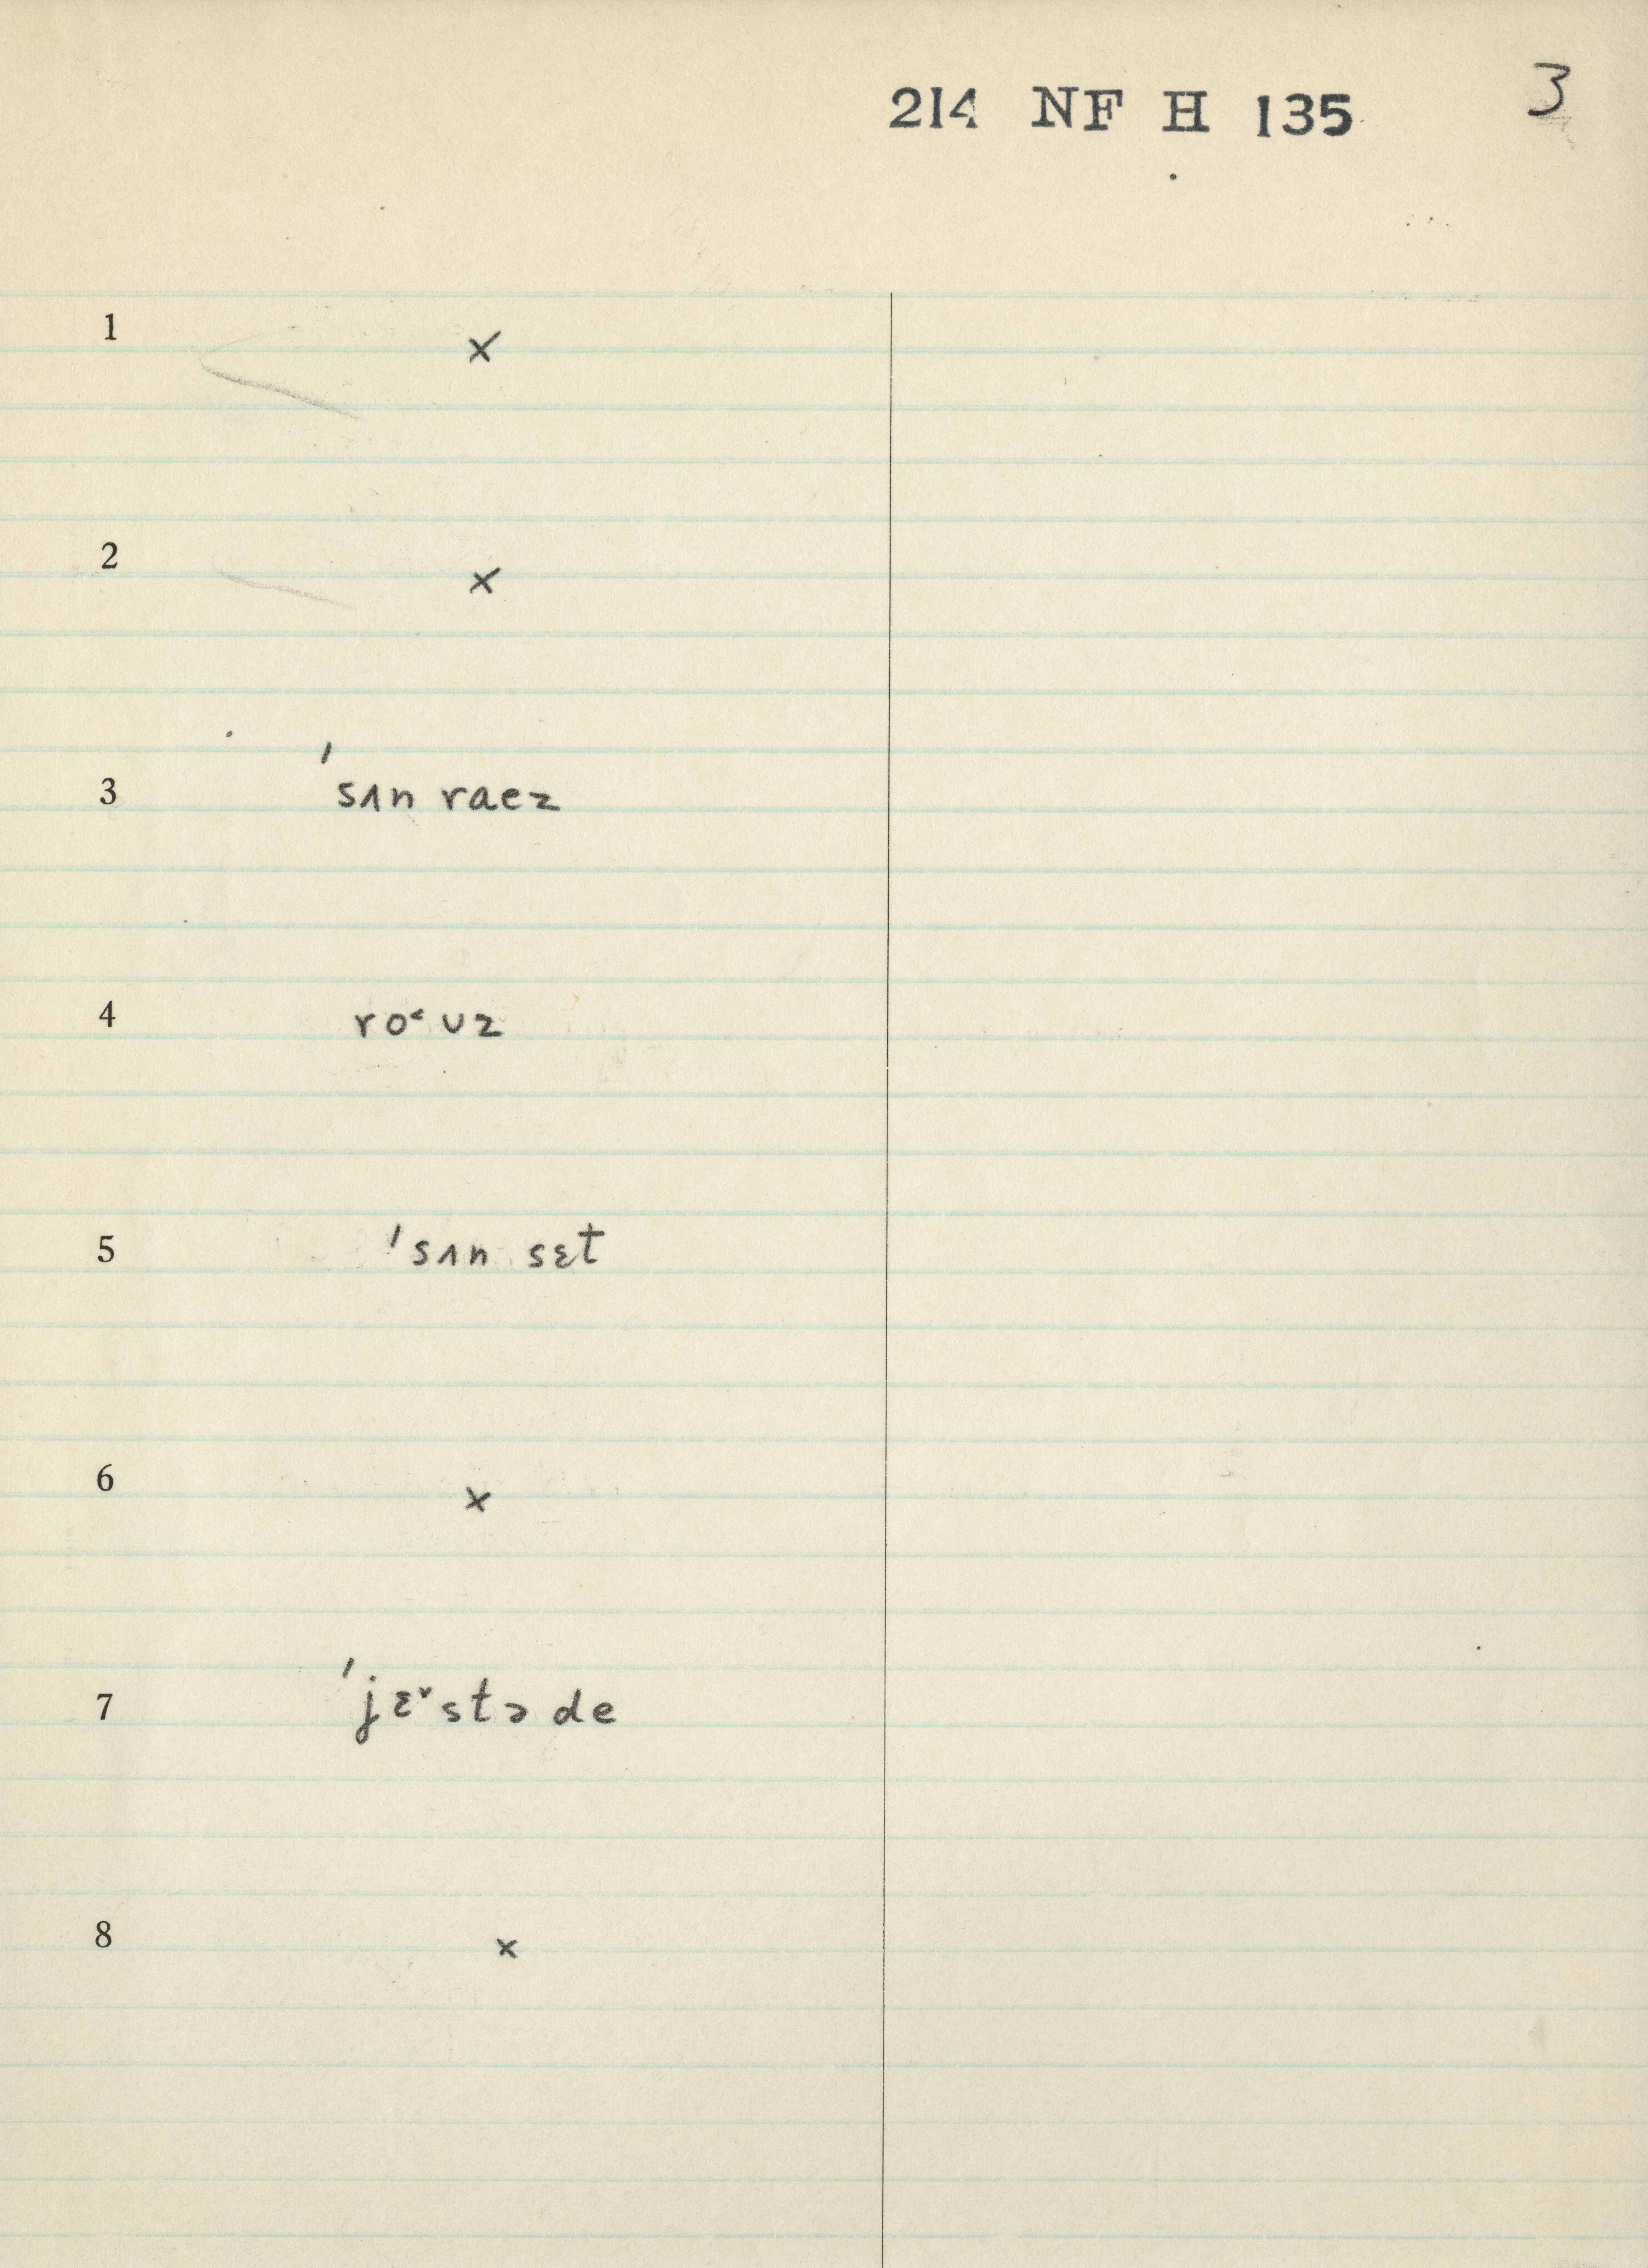 214 NF H 135 3
1 ×
2 ×
3 ˈsʌn raez
4 ro˂ʊz
5 ˈsʌn sɛt
6 ×
7 ˈjɛ˅stə de
8 ×